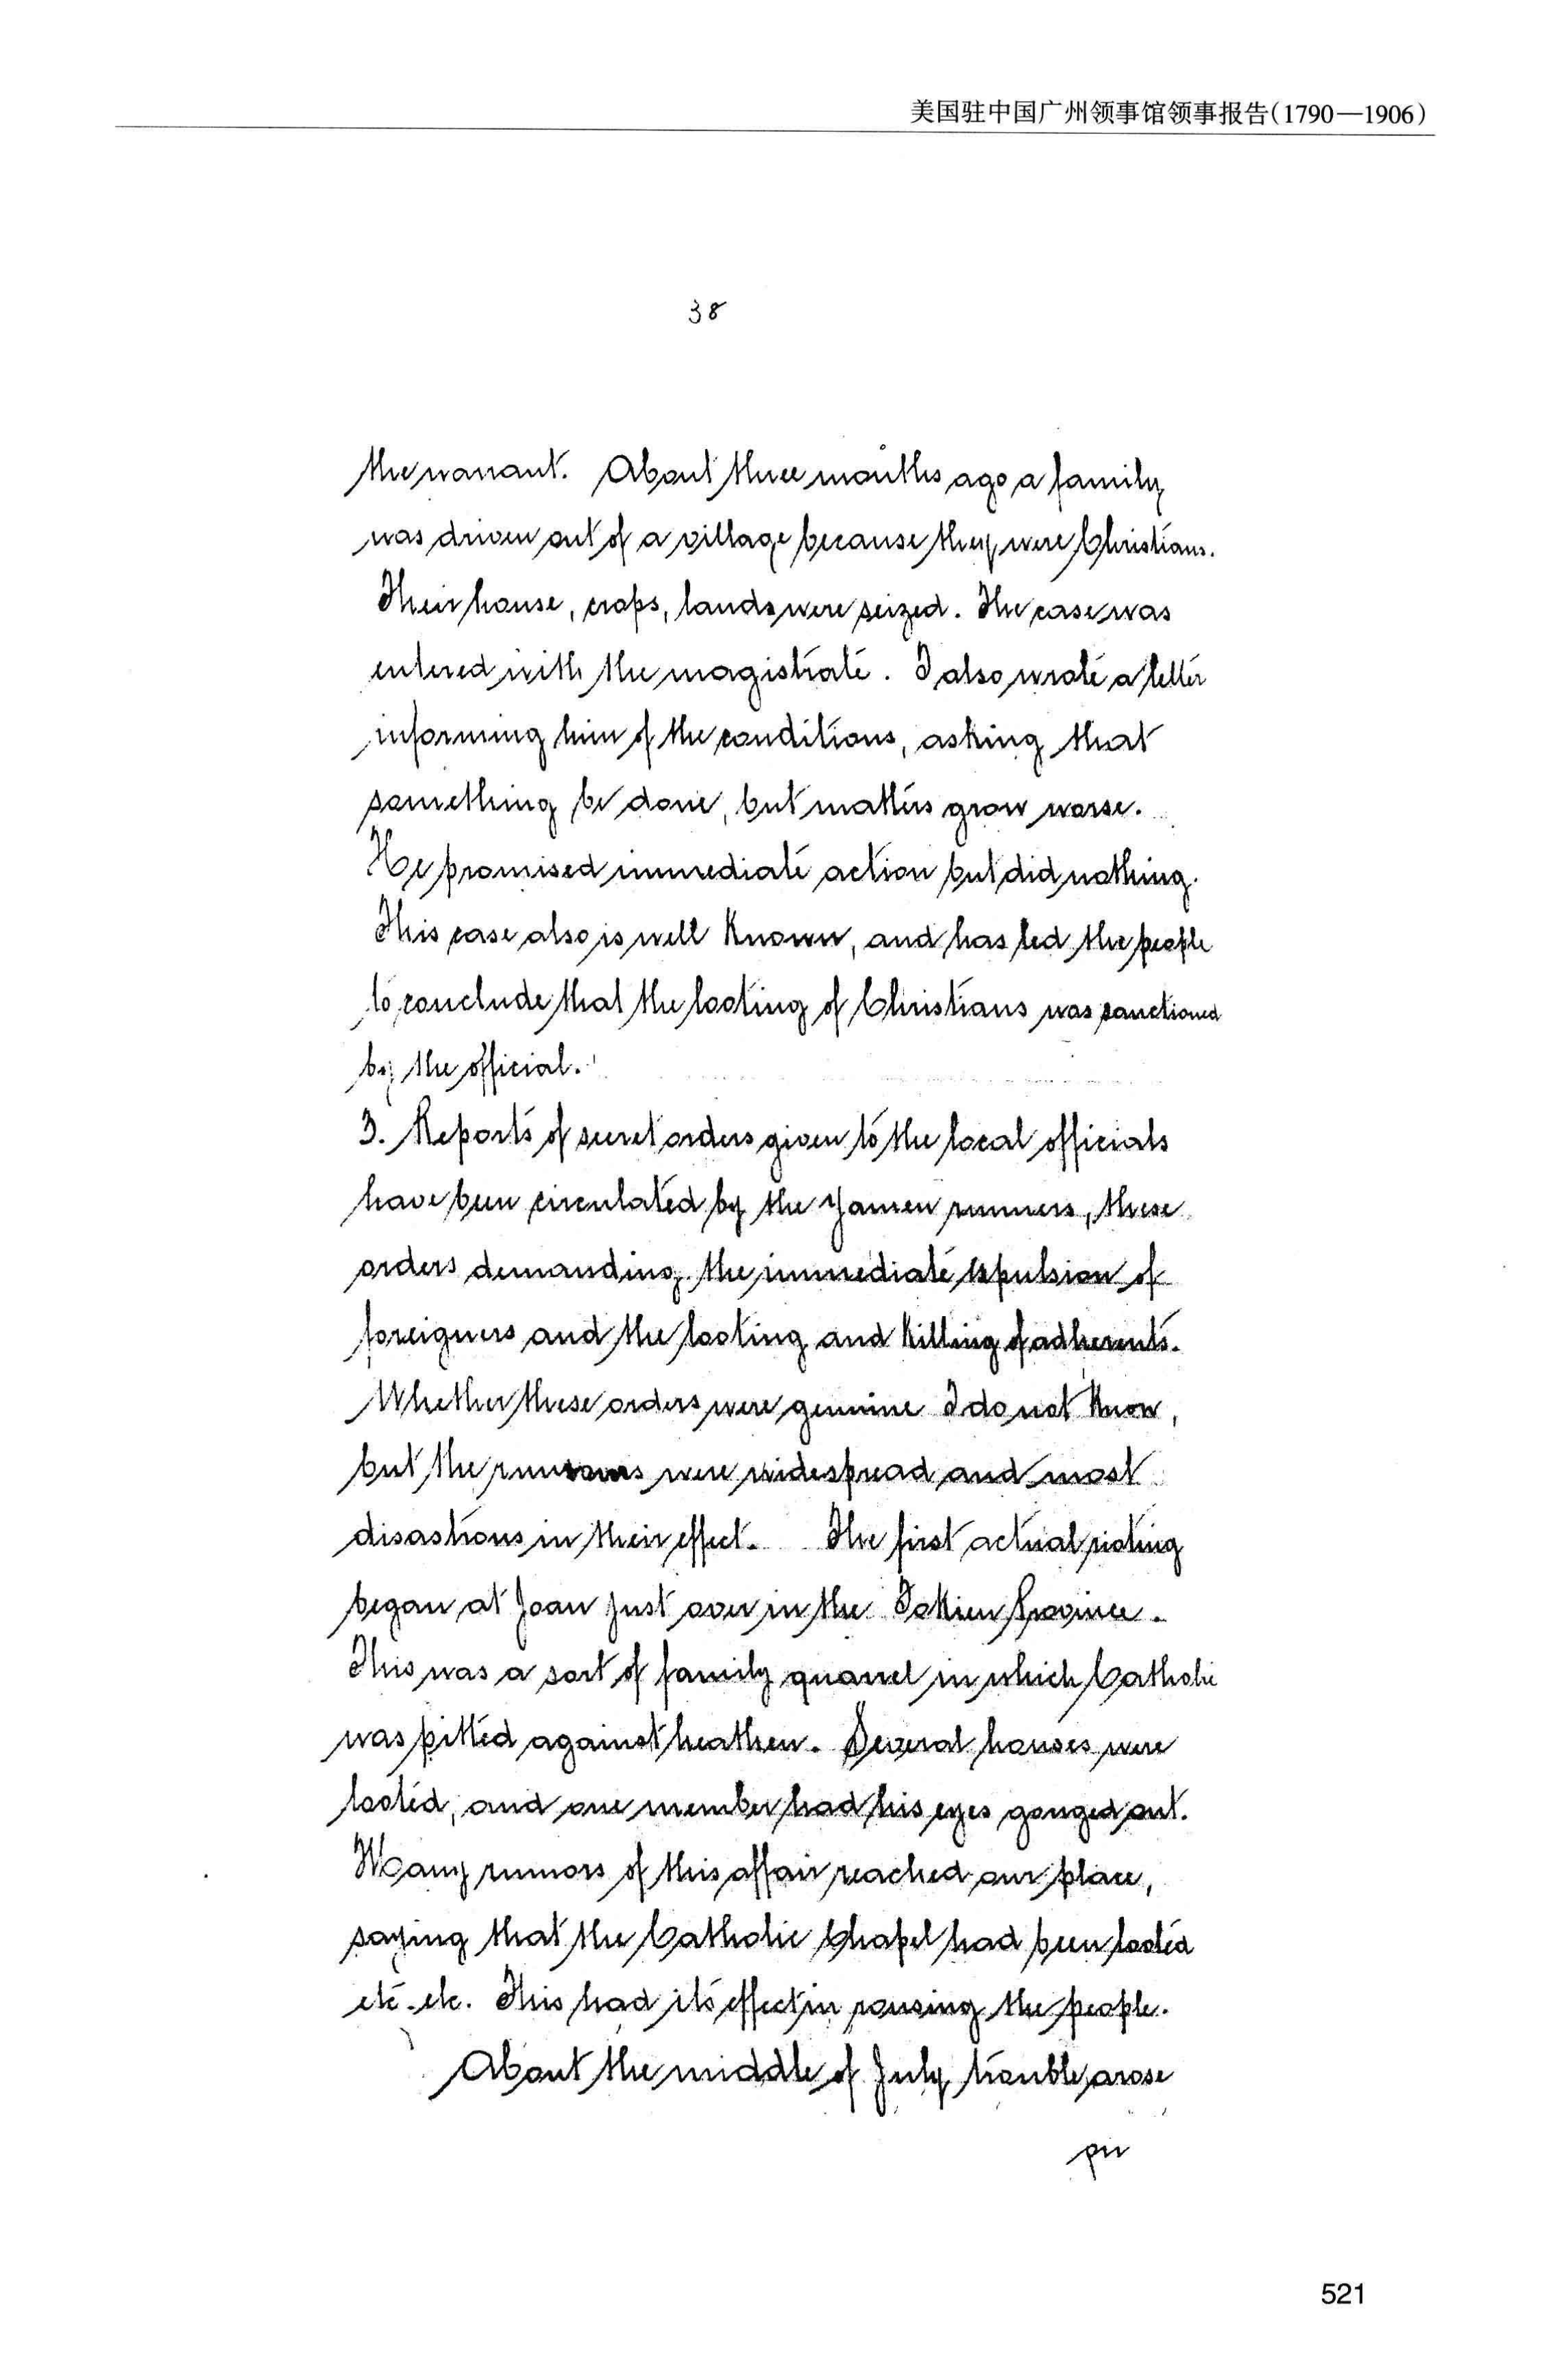 美国驻中国广州领事馆领事报告(1790—1906)
38
the warrant. About three months ago a family
was driven out of a village because they were Christians.
Their house, crops, lands were seized. The case was
entered with the magistrate. I also wrote a letter
informing him of the conditions, asking that
something be done, but matters grow worse.
He promised immediate action but did nothing.
This case also is well known, and has led the people
to conclude that the looting of Christians was sanctioned
by the official.
3. Reports of secret orders given to the local officials
have been circulated by the Yamen runners, these
orders demanding the immediate expulsion of
foreigners and the looting and killing of adherents.
Whether these orders were genuine I do not know,
but the rumors were widespread and most
disastrous in their effect. The first actual rioting
began at Joan just over in the Fokien Province.
This was a sort of family quarrel in which Catholic
was pitted against heathen. Several houses were
looted, and one member had his eyes gouged out.
Many rumors of this affair reached our place,
saying that the Catholic Chapel had been looted
etc. etc. This had its effect in rousing the people.
About the middle of July trouble arose
on
521